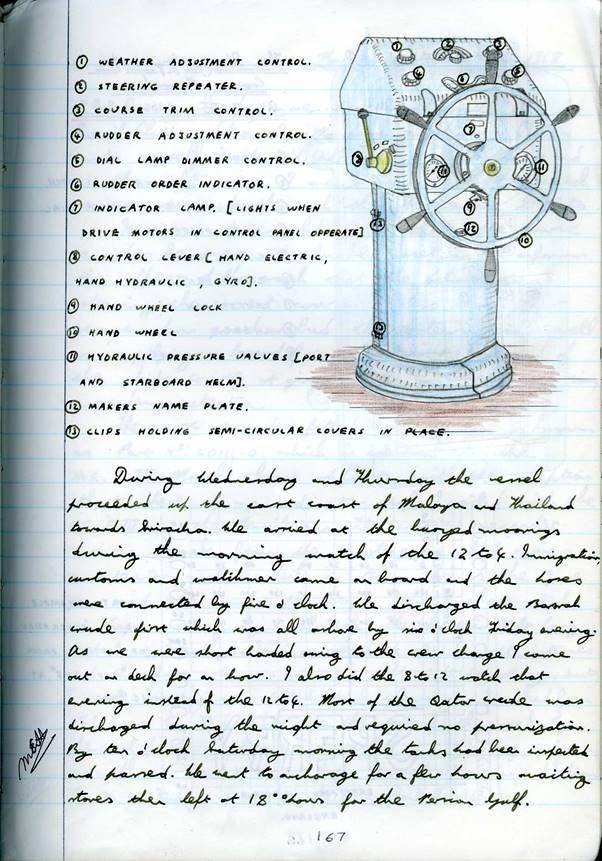 ① WEATHER ADJUSTMENT CONTROL.
② STEERING REPEATER.
③ COURSE TRIM CONTROL.
④ RUDDER ADJUSTMENT CONTROL.
⑤ DIAL LAMP DIMMER CONTROL.
⑥ RUDDER ORDER INDICATOR.
⑦ INDICATOR LAMP. [LIGHTS WHEN
DRIVE MOTORS IN CONTROL PANEL OPPERATE]
⑧ CONTROL LEVER [HAND ELECTRIC,
HAND HYDRAULIC, GYRO].
⑨ HAND WHEEL LOCK
⑩ HAND WHEEL
⑪ HYDRAULIC PRESSURE VALUES [PORT
AND STARBOARD HELM].
⑫ MAKERS NAME PLATE.
⑬ CLIPS HOLDING SEMI-CIRCULAR COVERS IN PLACE.
During Wednesday and Thursday the vessel
proceeded up the east coast of Malaya and Thailand
towards Sriracha. We arrived at the buoyed moorings
during the morning watch of the 12 to 4. Immigration,
customs and watchmen came on board and the hoses
were connected by five o'clock. We discharged the Basrah
crude first which was all ashore by six o'clock Friday evening.
As we were short handed owing to the crew change I came
out on deck for an hour. I also did the 8 to 12 watch that
evening instead of the 12 to 4. Most of the Qatar crude was
discharged during the night and required no pressurization.
By ten o'clock Saturday morning the tanks had been inspected
and passed. We went to anchorage for a few hours awaiting
stores then left at 18°° hours for the Persian Gulf.
167